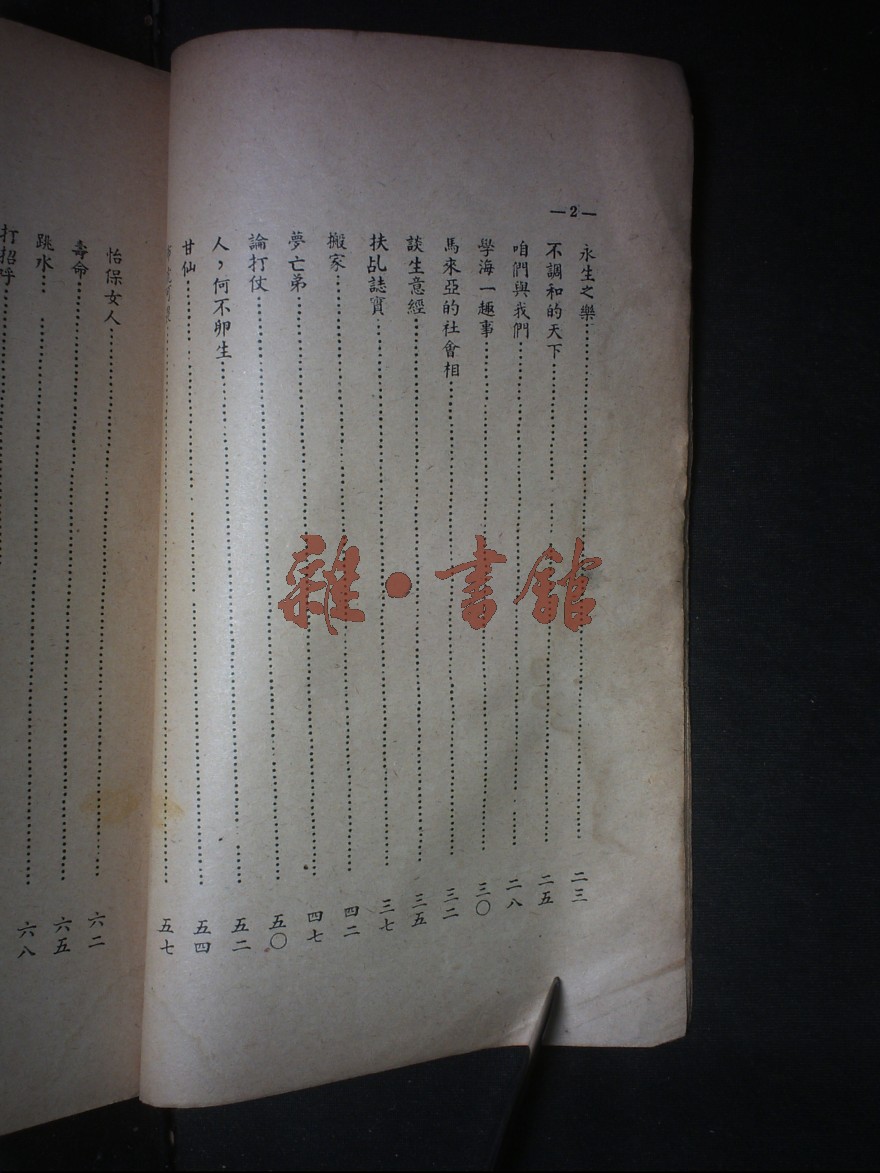 —2—
永生之樂 二三
不調和的天下 二五
咱們與我們 二八
學海一趣事 三〇
馬來亞的社會相 三二
談生意經 三五
扶乩誌實 三七
搬家 四二
夢亡弟 四七
論打仗 五〇
人，何不卵生 五二
甘仙 五四
五七
怡保女人 六二
壽命 六五
跳水 六八
打招呼
雜·書館